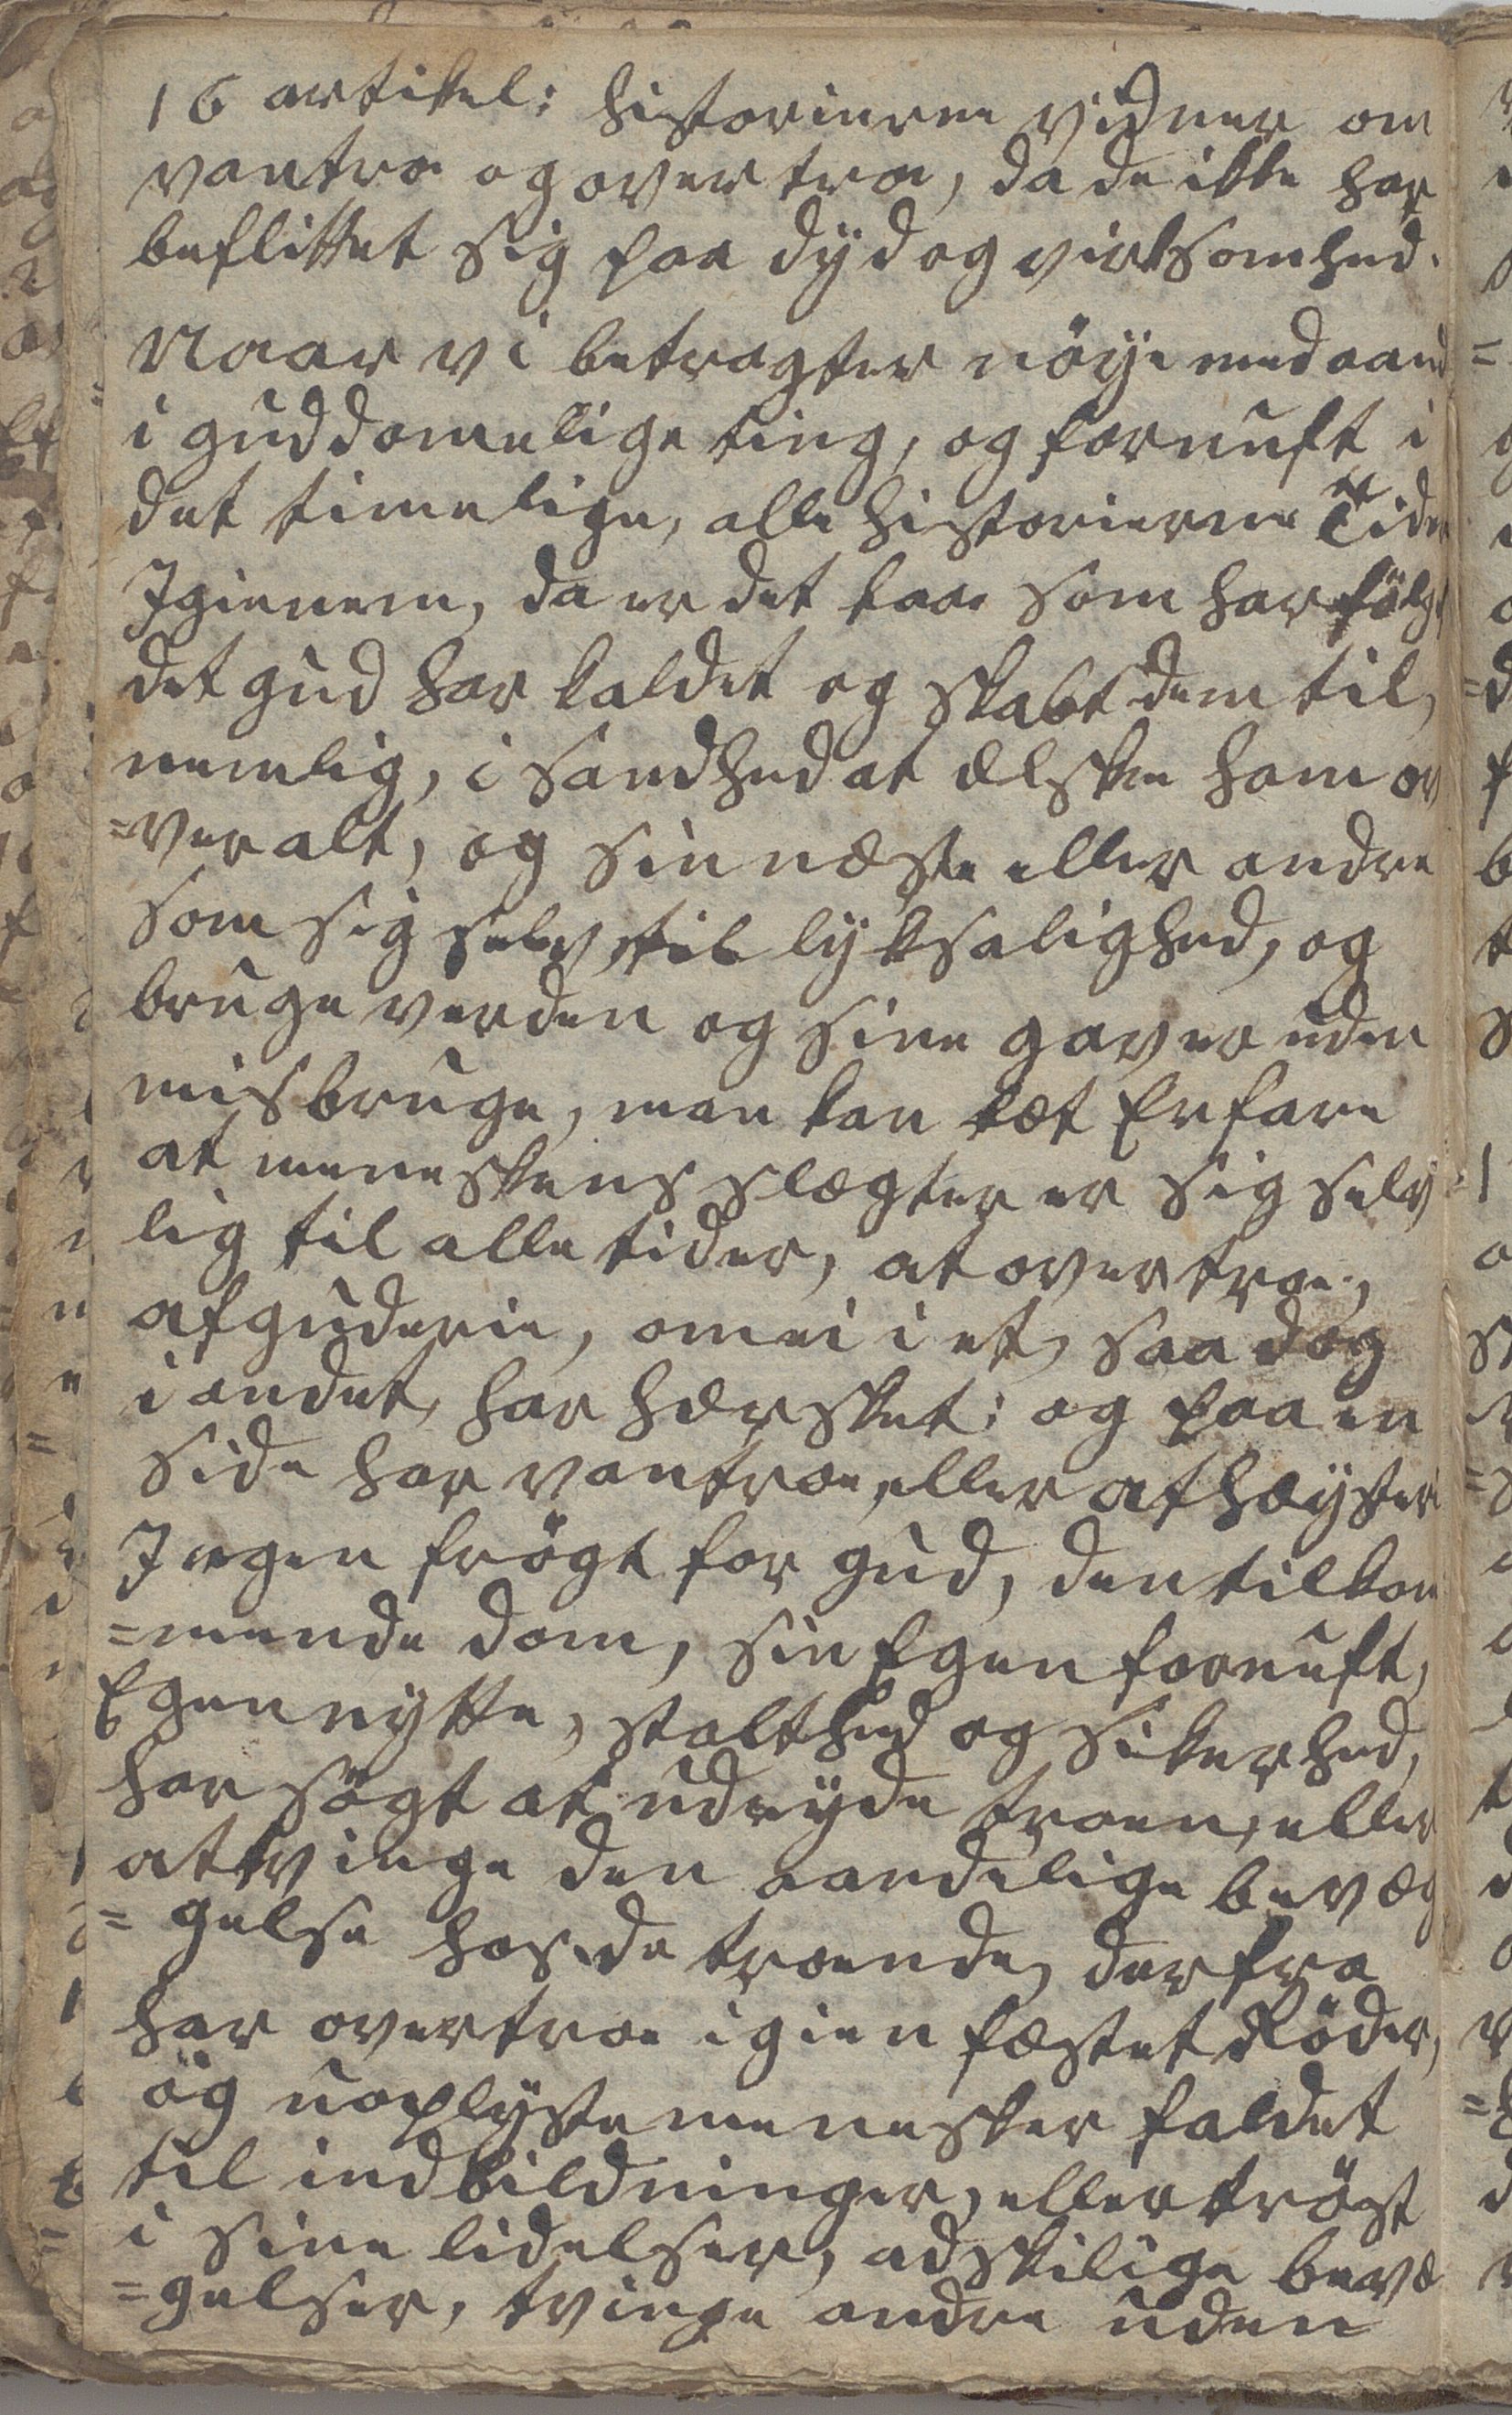 16 artikel: historierne vidner om
vantro og overtroe, da de ikke har
beflittet sig paa dyd og virksomhed.
Naar vi betragter nöye med aand
i guddomelige ting, og fornuft i
det timelige, alle historierne Tiden
Igienem, da er det faa som har fölgt
det gud har kaldet og skabt dem til,
nemlig, i sandhed at elske ham o
=ver alt, og sin næste eller andre
som sig selv, til lyksalighed, og
bruge verden og sine gaver uden
misbruge, man kan læt Erfare
at meneskens slægter er sig selv
lig til alle tider, at overtroe,
afguderie, om ei i et, saa dog
i andet, har hersket: og paa en
side har vantroe, eller atheyster
Ingen frögt for gud, den tilkom
=mende dom, sin Egen fornuft,
Egennytte, stolthed og sikerhed,
har sögt at udryde troen, eller
at tvinge den aandelige bevæ
=gelse hos de troende, derfra
har overtroe igien fæstet Röder,
og uoplyste menesker faldet
til indbildninger, eller tröst
i sine lidelser, adskilige bevæ
=gelser, tvinge andre uden